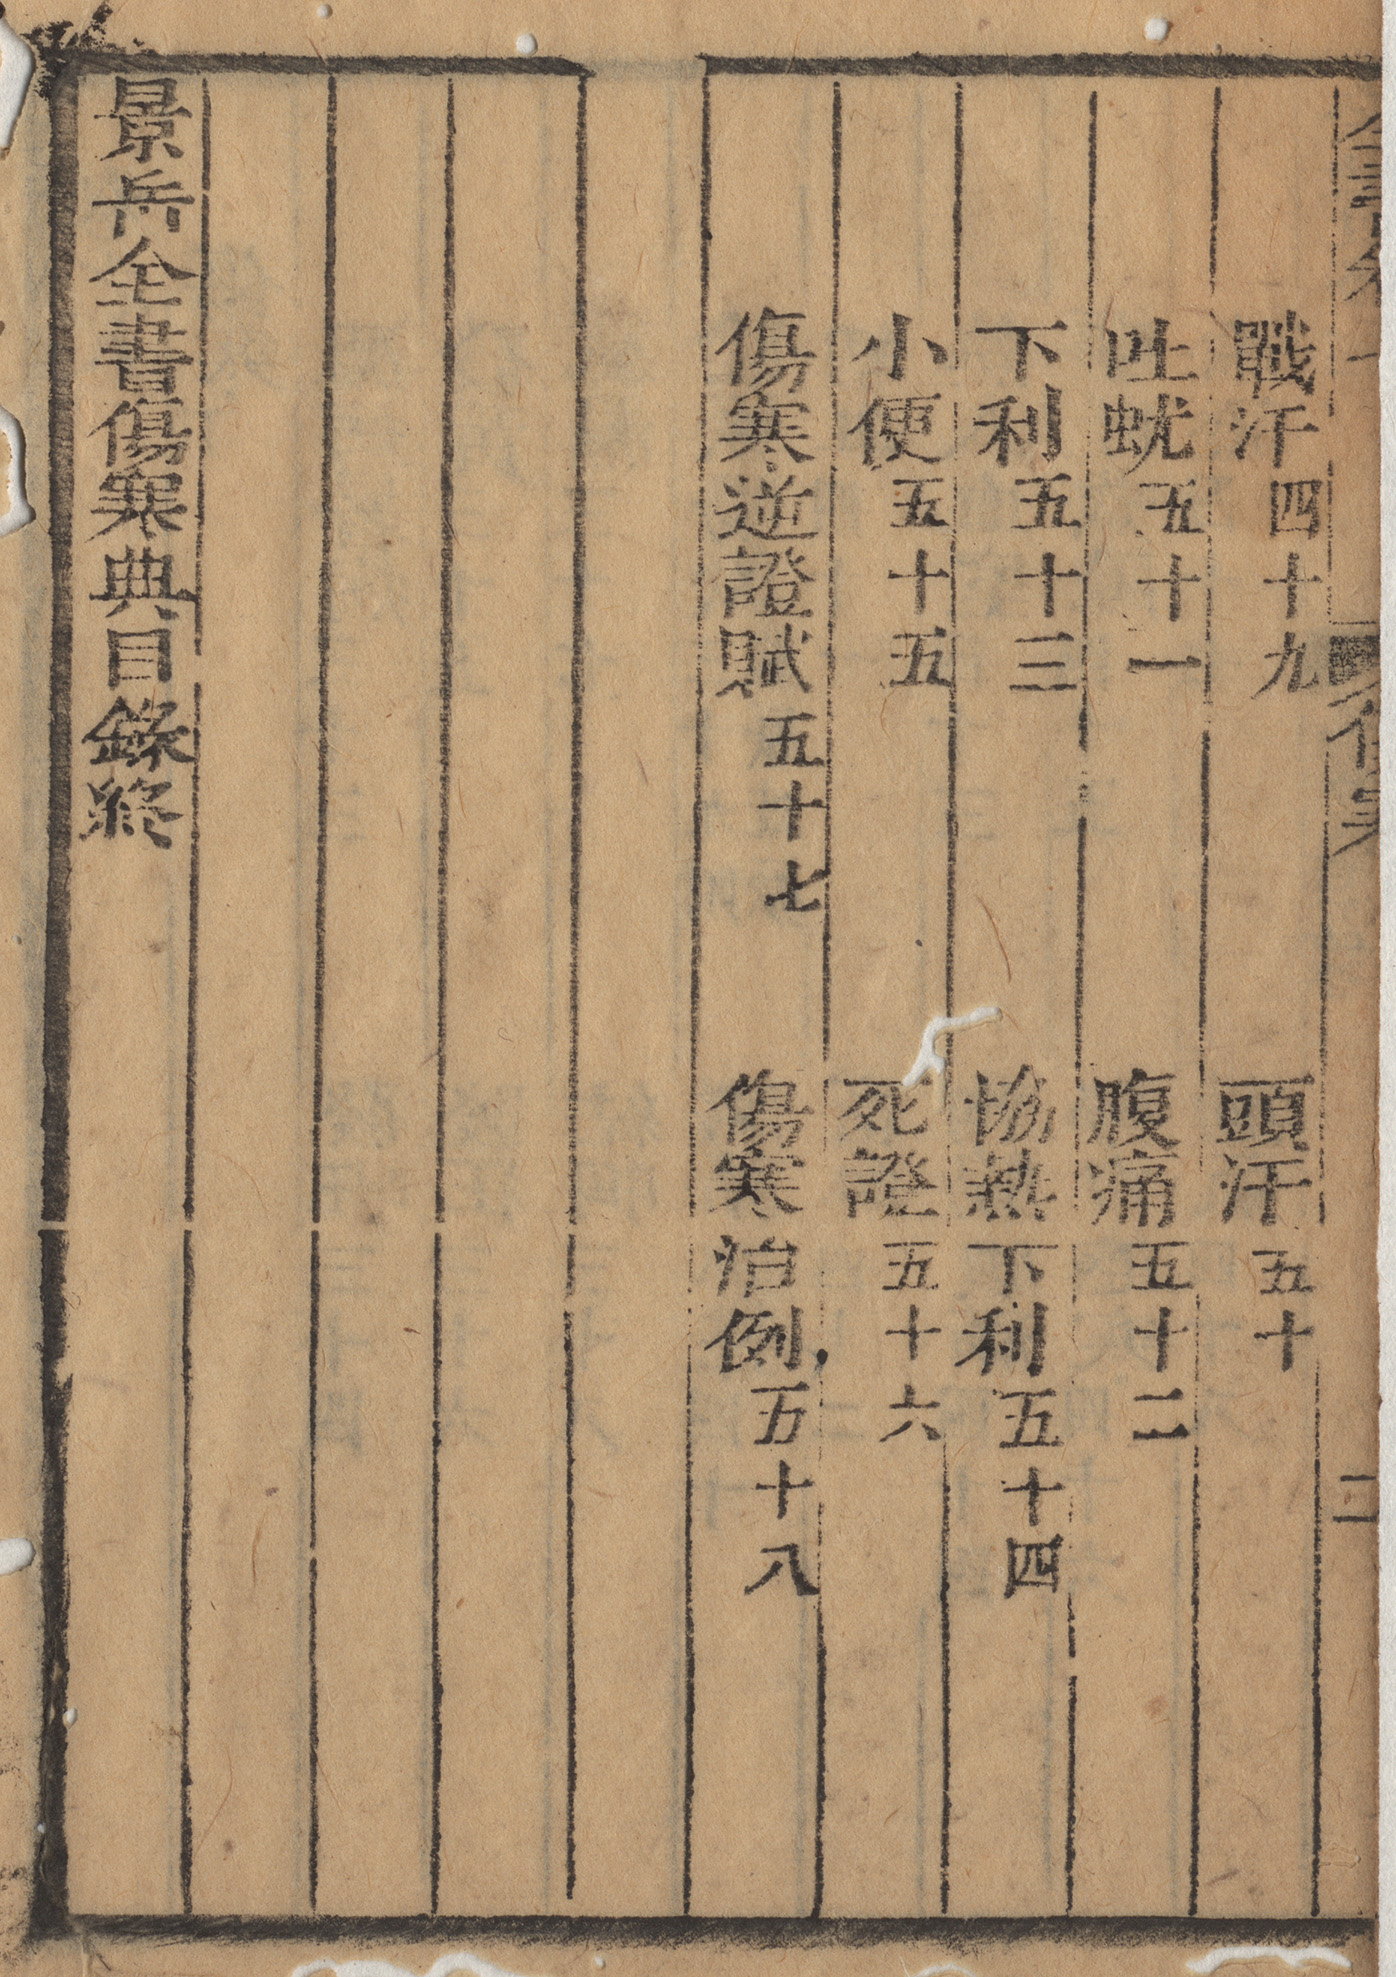 戰汗四十九 頭汗五十
吐蚘五十一 腹痛五十二
下利五十三 協熱下利五十四
小便五十五 死證五十六
傷寒逆證賦五十七 傷寒治例五十八
景岳全書傷寒典目錄終